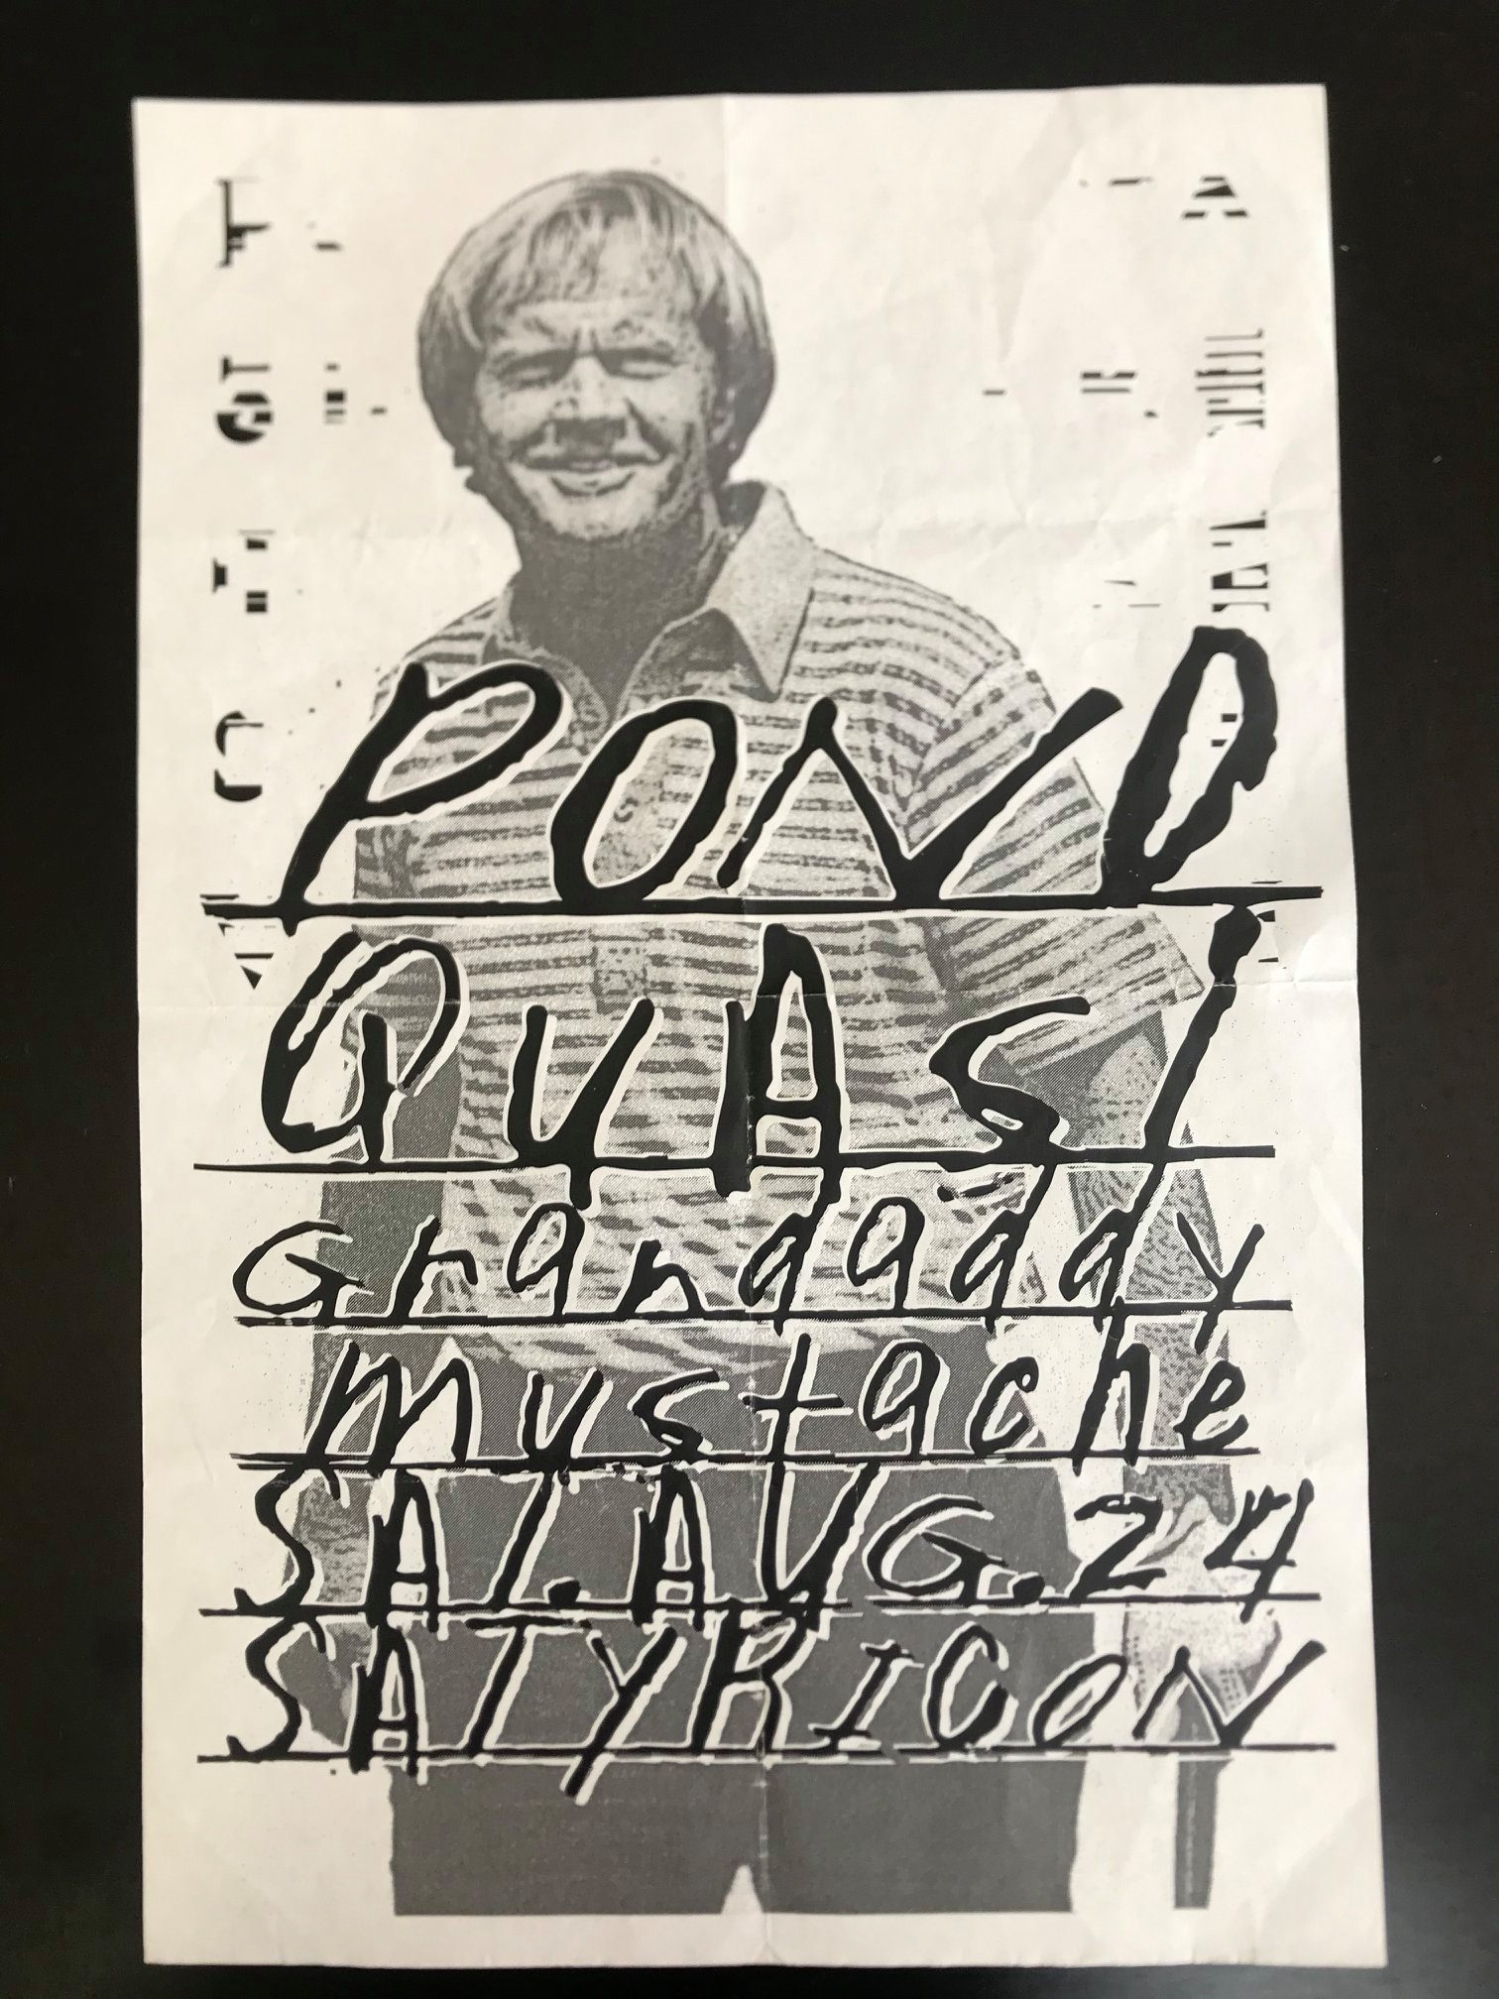 POND
QUASI
Grandaddy
mustache
SAT. AUG. 24
SATYRICON